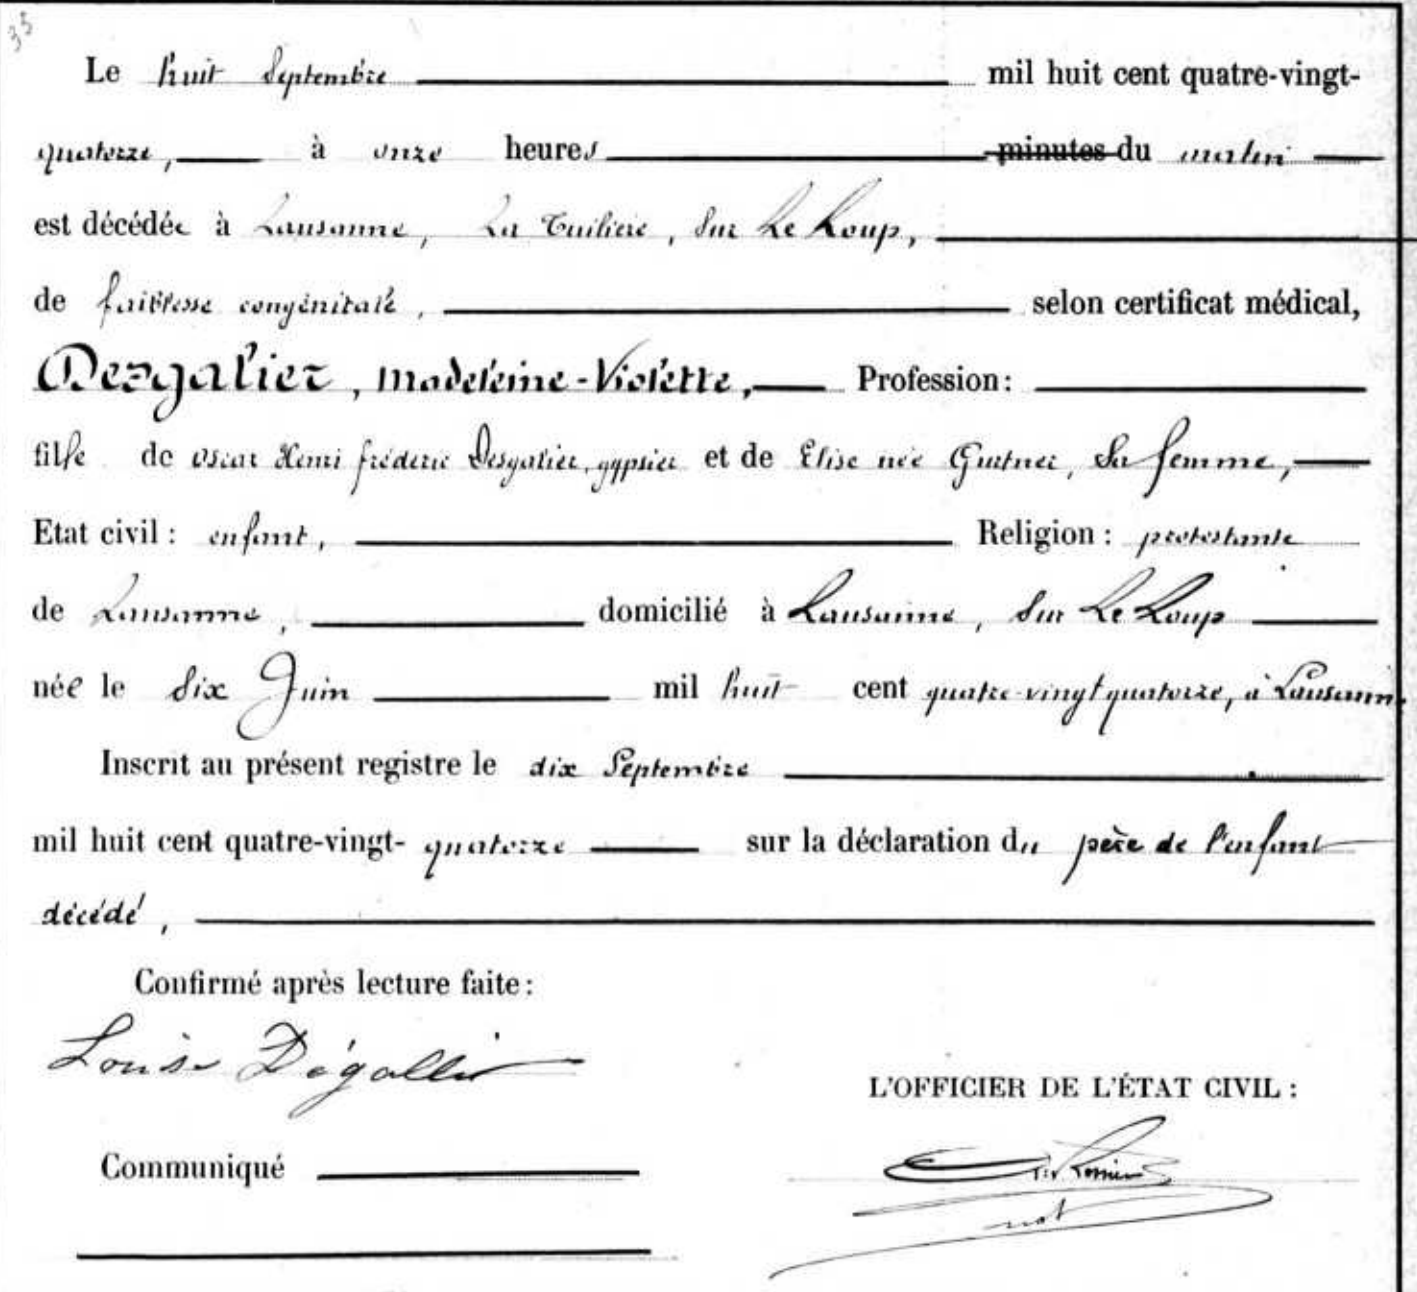 35
Le huit Septembre mil huit cent quatre-vingt-
quatorze, à onze heures minutes du matin
est décédée à Lausanne, La Tuiliere, Sur Le Loup,
de faiblesse congénitale, selon certificat médical,
Desgalier, Madeleine-Violette, Profession:
fille de Oscar Henri fréderic Desgalier, gypsier et de Elise née Gurtner, Sa femme,
Etat civil : enfant, Religion : protestante
de Lausanne, domicilié à Lausanne, Sur Le Loup
née le Six Juin mil huit cent quatre-vingt quatorze, à Lausanne
Inscrit au présent registre le dix Septembre
mil huit cent quatre-vingt- quatorze sur la déclaration du père de l'enfant
décédé,
Confirmé après lecture faite :
Louise Dégallier
L'OFFICIER DE L'ÉTAT CIVIL :
Communiqué
not